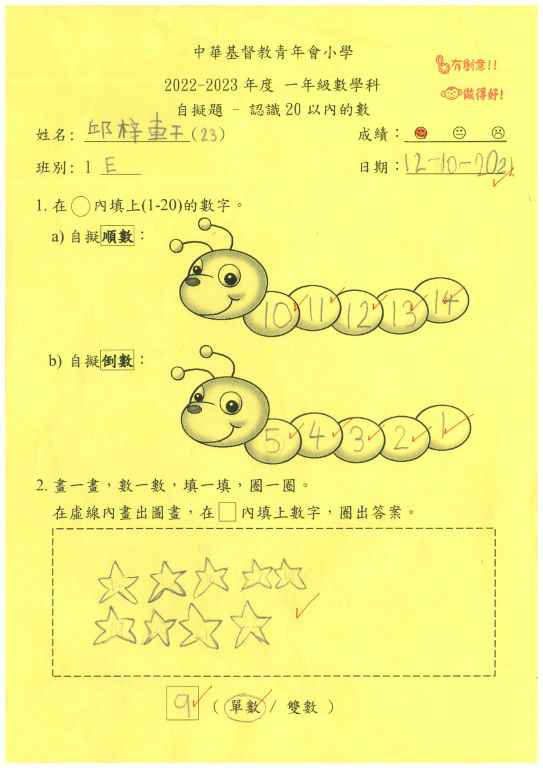 中華基督教青年會小學
有創意!!
2022-2023 年度 一年級數學科
做得好!
自擬題 – 認識 20 以內的數
姓名: 邱梓軒 (23) 成績:
班別: 1 E 日期: 12-10-2022
1. 在○內填上(1-20)的數字。
a) 自擬順數:
10 11 12 13 14
b) 自擬倒數:
5 4 3 2 1
2. 畫一畫,數一數,填一填,圈一圈。
在虛線內畫出圖畫,在□內填上數字,圈出答案。
9 ( 單數 / 雙數 )